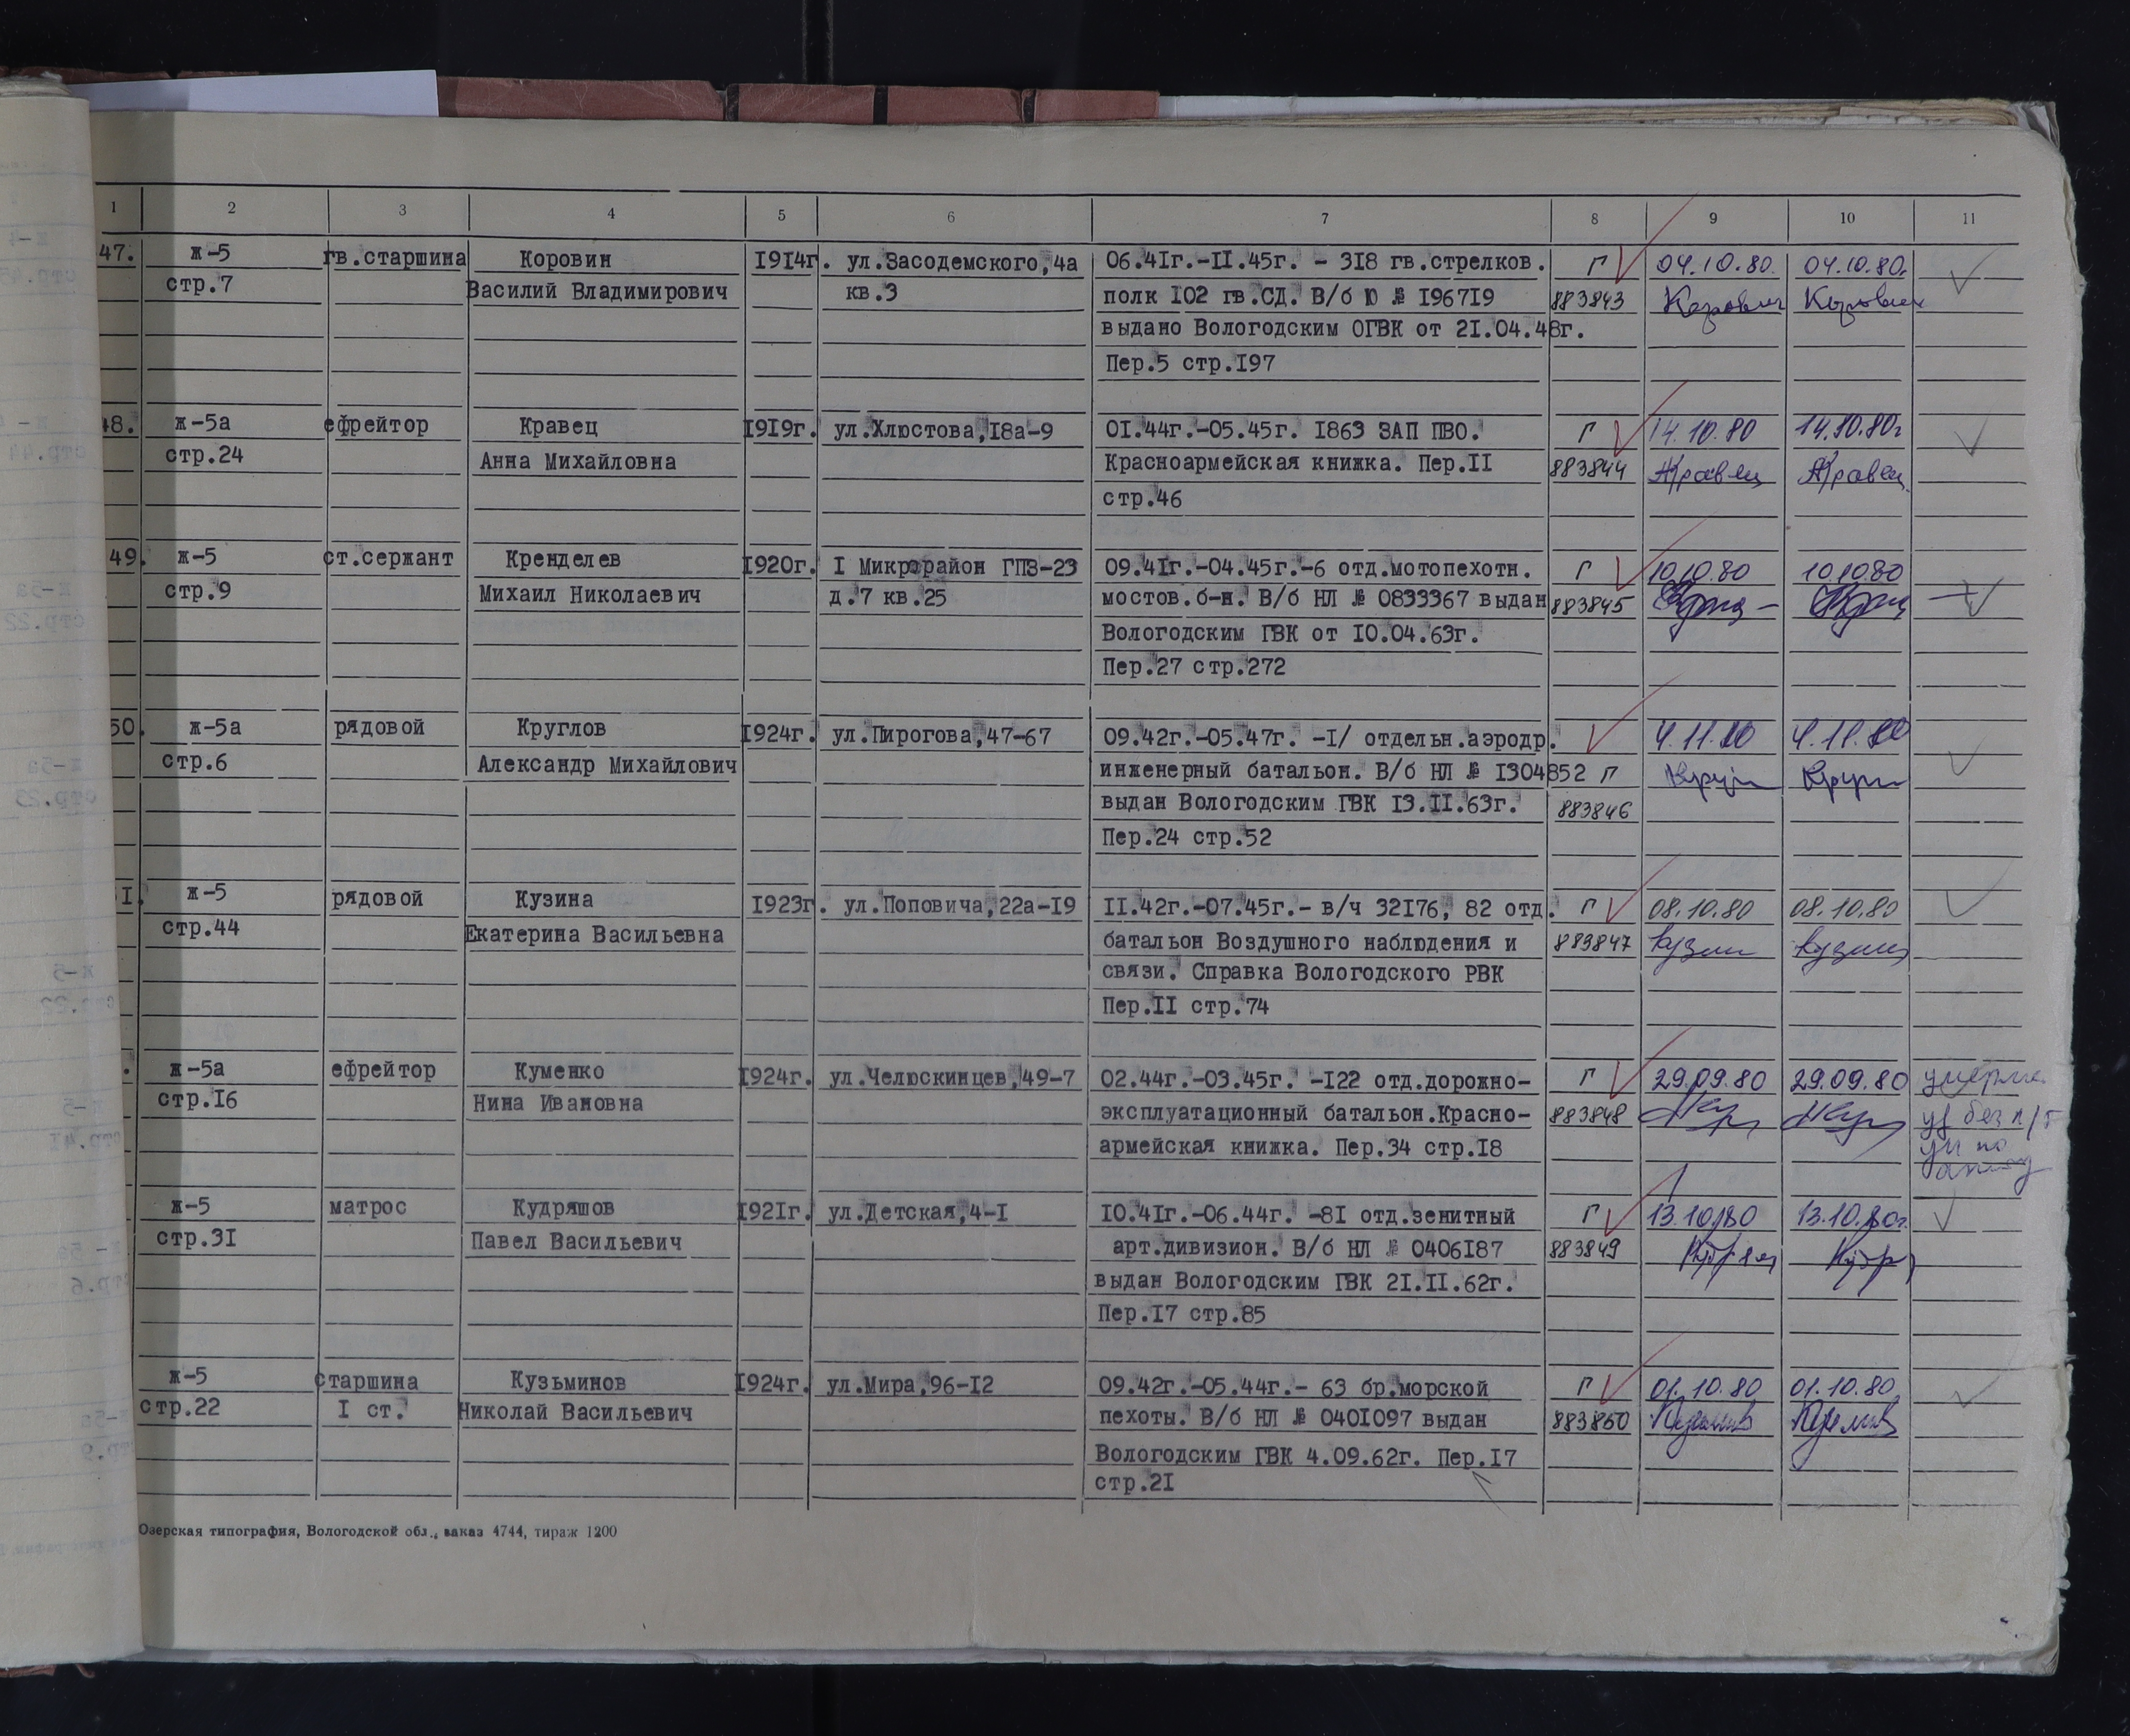 1 2 3 4 5 6 7 8 9 10 11
47. ж-5 гв.старшина Коровин 1914г. ул.Засодемского,4а 06.41г.-11.45г. - 318 гв.стрелков. Г 04.10.80. 04.10.80г
стр.7 Василий Владимирович кв.3 полк 102 гв.СД. В/б Ю № 196719 883843 Коровин Коровин
выдано Вологодским ОГВК от 21.04.48г.
Пер.5 стр.197
48. ж-5а ефрейтор Кравец 1919г. ул.Хлюстова,18а-9 01.44г.-05.45г. 1863 ЗАП ПВО. Г 14.10.80 14.10.80г
стр.24 Анна Михайловна Красноармейская книжка. Пер.11 883844 Кравец Кравец
стр.46
49. ж-5 ст.сержант Кренделев 1920г. 1 Микрорайон ГПЗ-23 09.41г.-04.45г.-6 отд.мотопехотн. Г 10.10.80 10.10.80
стр.9 Михаил Николаевич д.7 кв.25 мостов.б-н. В/б НЛ № 0833367 выдан 883845
Вологодским ГВК от 10.04.63г.
Пер.27 стр.272
50. ж-5а рядовой Круглов 1924г. ул.Пирогова,47-67 09.42г.-05.47г. -1/ отдельн.аэродр. 4.11.80 4.11.80
стр.6 Александр Михайлович инженерный батальон. В/б НЛ № 1304852 Г
выдан Вологодским ГВК 13.11.63г. 883846
Пер.24 стр.52
1. ж-5 рядовой Кузина 1923г. ул.Поповича,22а-19 11.42г.-07.45г.- в/ч 32176, 82 отд. Г 08.10.80 08.10.80
стр.44 Екатерина Васильевна батальон Воздушного наблюдения и 883847 Кузин Кузина
связи. Справка Вологодского РВК
Пер.11 стр.74
. ж-5а ефрейтор Куменко 1924г. ул.Челюскинцев,49-7 02.44г.-03.45г. -122 отд.дорожно- Г 29.09.80 29.09.80 умерла
стр.16 Нина Ивановна эксплуатационный батальон.Красно- 883848 уд без п/г
армейская книжка. Пер.34 стр.18
ж-5 матрос Кудряшов 1921г. ул.Детская,4-1 10.41г.-06.44г. -81 отд.зенитный Г 13.10.80 13.10.80г.
стр.31 Павел Васильевич арт.дивизион. В/б НЛ № 0406187 883849
выдан Вологодским ГВК 21.11.62г.
Пер.17 стр.85
ж-5 старшина Кузьминов 1924г. ул.Мира,96-12 09.42г.-05.44г.- 63 бр.морской Г 01.10.80 01.10.80
стр.22 1 ст. Николай Васильевич пехоты. В/б НЛ № 0401097 выдан 883850
Вологодским ГВК 4.09.62г. Пер.17
стр.21
Озерская типография, Вологодской обл., заказ 4744, тираж 1200